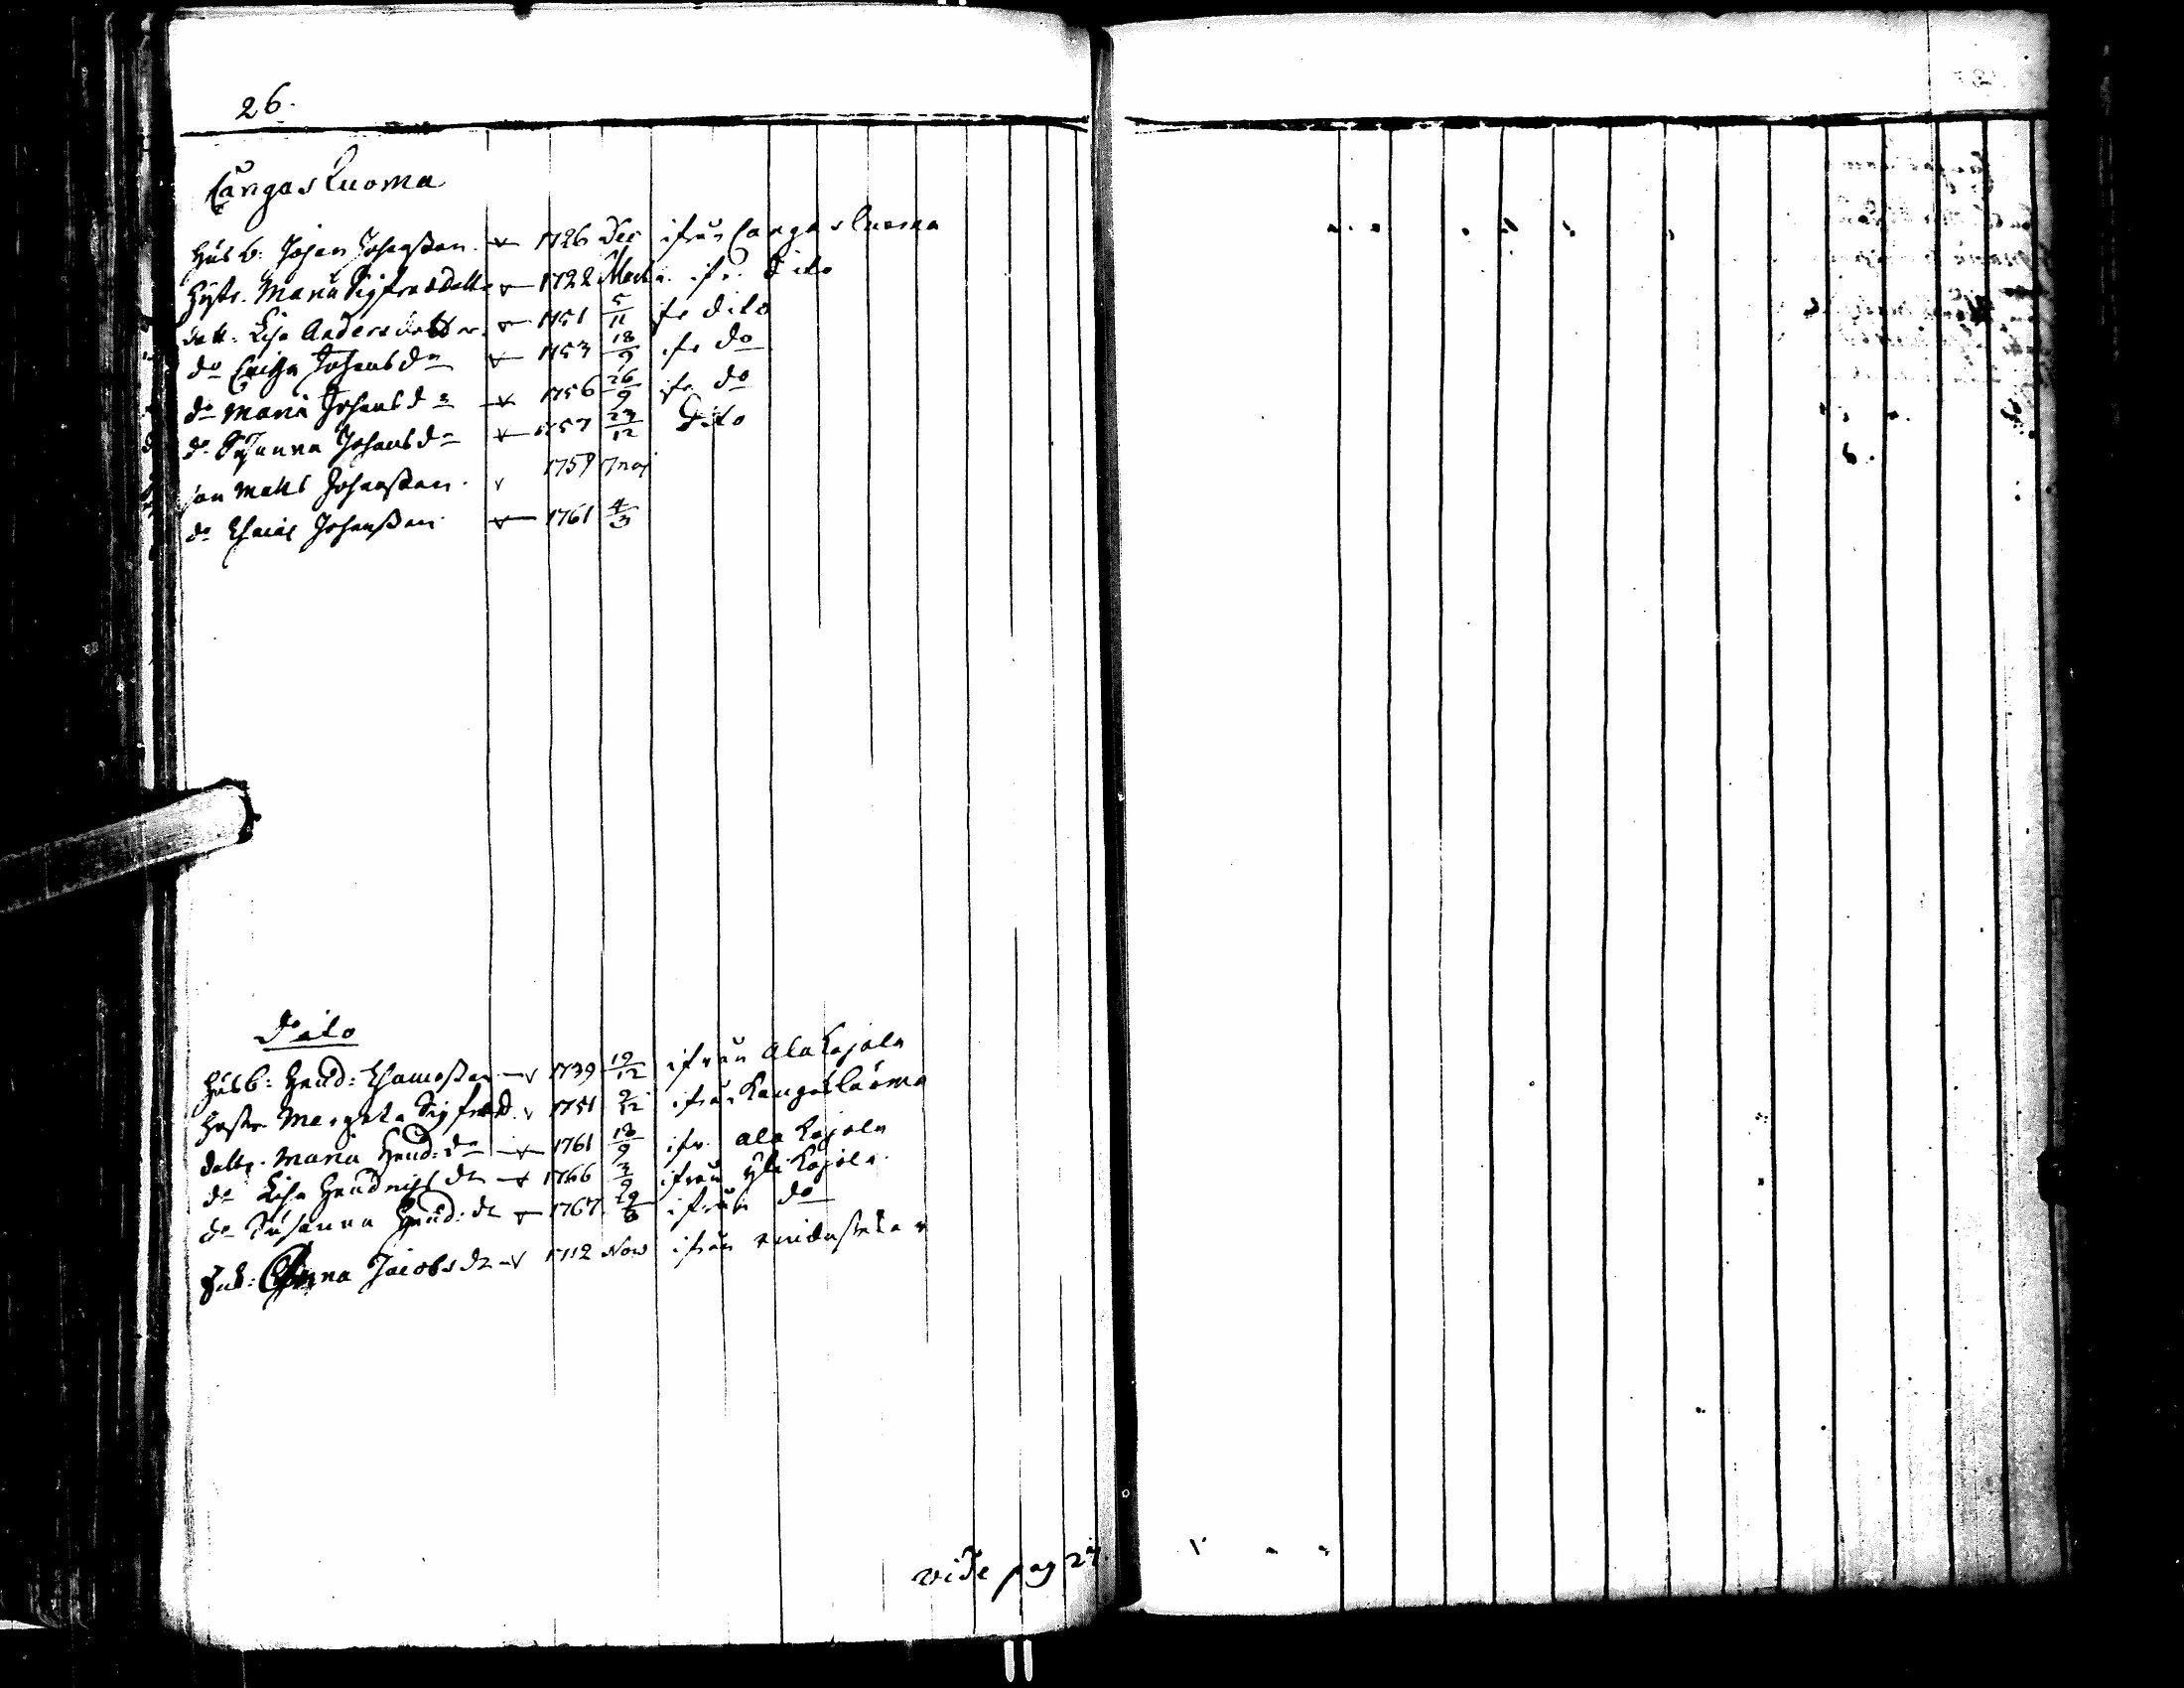 26.
Cangas Luoma
Husb. Johan Johansson v 1726 Dec ifrån Cangas Luoma
Hustr. Maria Sigfredsdotte v 1722 Mart. ifr. Dito
dott. Lisa Andersdotter v 1751 5/11 fr dito
do Caisa Johansdr v 1753 18/9 ifr do
do Maria Johansdr v 1756 26/9 ifr do
do Susanna Johansdr v 1757 23/12 Dito
son Matts Johansson. v 1759 Maj
do Johansson v 1761 4/3
Dito
Husb: Hend: Thomasson v 1739 19/12 ifrån Ala Kojola
Hustr. Margreta Sigfredsd. v 1751 2/12 ifrån Kangas Luoma
dottr. Maria Hend: dr v 1761 18/9 ifr. Ala Kojola
do Lisa Hendrichs dr v 1766 3/9 ifrån Yli Kojola
do Susanna Hend: dr v 1767 29/8 ifrån do
Enk: Anna Jacobsdr v 1712 Nov ifrån
vide pag 27.